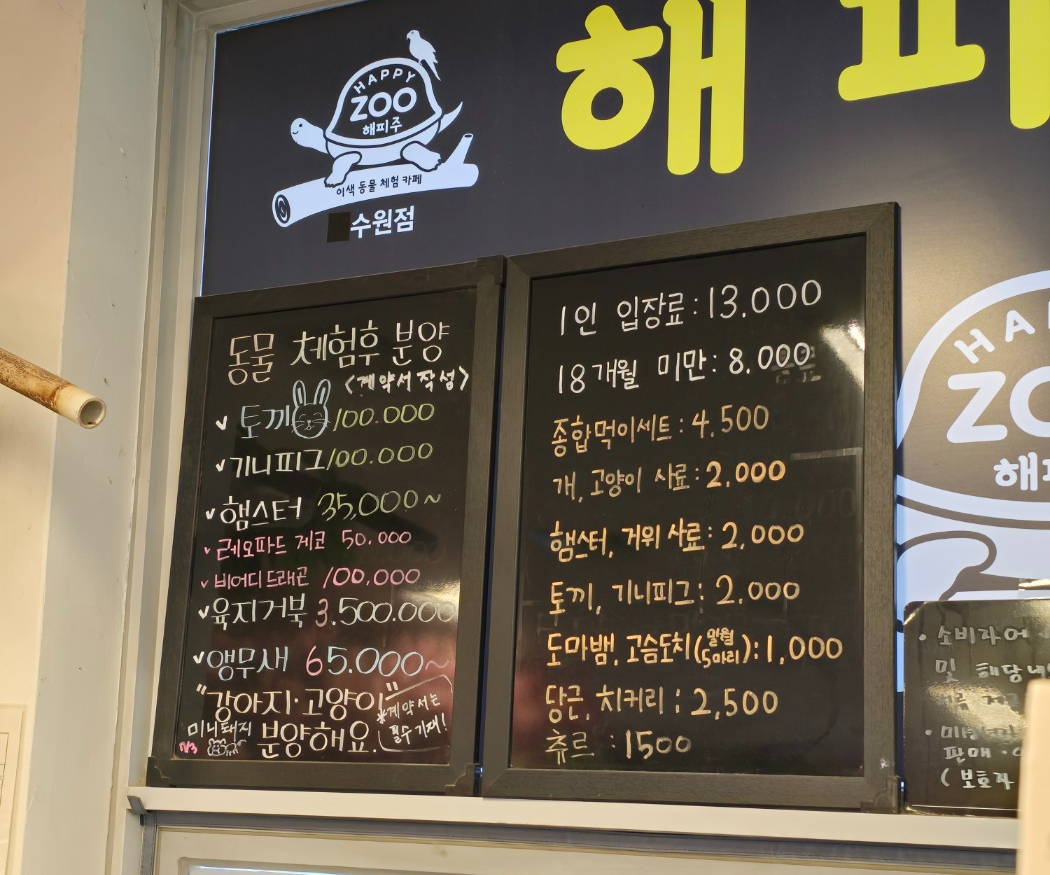 HAPPY
ZOO
해피주
이색 동물 체험 카페
수원점
해피
동물 체험후 분양
<계약서 작성>
✓ 토끼 100.000
✓ 기니피그 100.000
✓ 햄스터 35,000~
✓ 근레오파드 게코 50.000
✓ 비어디드래곤 100.000
✓ 육지거북 3.500.000
✓ 앵무새 65.000~
"강아지·고양이"
미니돼지 분양해요.
*계약서는
필수 기재!
1인 입장료: 13.000
18개월 미만: 8.000
종합먹이세트: 4.500
개, 고양이 사료: 2.000
햄스터, 거위 사료: 2,000
토끼, 기니피그: 2.000
도마뱀, 고슴도치(밀웜 5마리): 1,000
당근, 치커리: 2,500
츄르: 1500
HA
ZO
해
• 소비자
및 해당
판매
(보호자